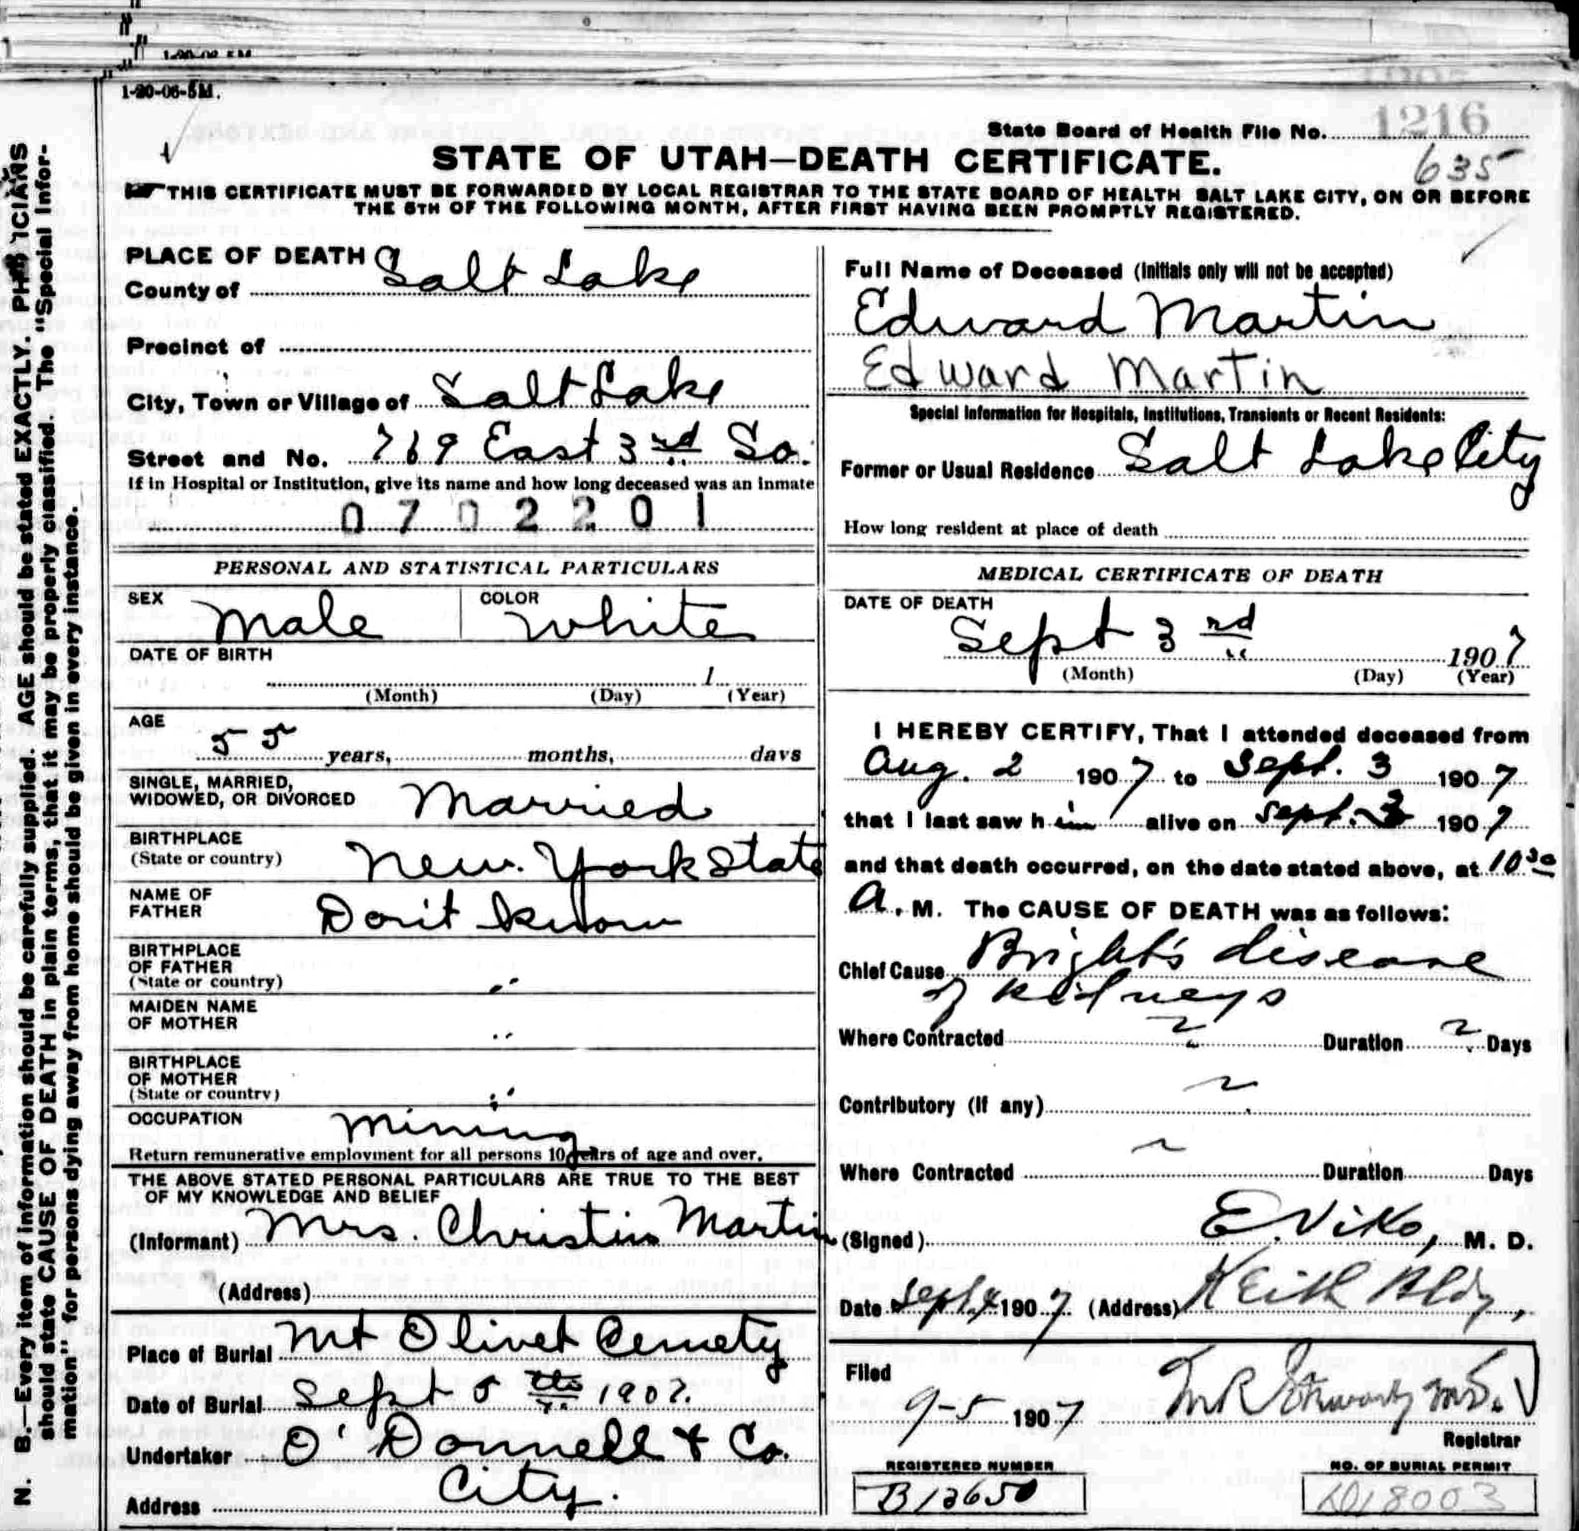 1-20-06-5M.
State Board of Health File No. 1216
635
STATE OF UTAH—DEATH CERTIFICATE.
THIS CERTIFICATE MUST BE FORWARDED BY LOCAL REGISTRAR TO THE STATE BOARD OF HEALTH SALT LAKE CITY, ON OR BEFORE
THE 5TH OF THE FOLLOWING MONTH, AFTER FIRST HAVING BEEN PROMPTLY REGISTERED.
N. B.—Every item of information should be carefully supplied. AGE should be stated EXACTLY. PHYSICIANS
should state CAUSE OF DEATH in plain terms, that it may be properly classified. The "Special Infor-
mation" for persons dying away from home should be given in every instance.
PLACE OF DEATH
County of Salt Lake
Precinct of
City, Town or Village of Salt Lake
Street and No. 769 East 3rd So.
If in Hospital or Institution, give its name and how long deceased was an inmate
0702201
PERSONAL AND STATISTICAL PARTICULARS
SEX Male COLOR White
DATE OF BIRTH
1
(Month) (Day) (Year)
AGE
55 years, months, days
SINGLE, MARRIED,
WIDOWED, OR DIVORCED Married
BIRTHPLACE
(State or country) New York State
NAME OF
FATHER Don't know
BIRTHPLACE
OF FATHER
(State or country) "
MAIDEN NAME
OF MOTHER "
BIRTHPLACE
OF MOTHER
(State or country) "
OCCUPATION Mining
Return remunerative employment for all persons 10 years of age and over.
THE ABOVE STATED PERSONAL PARTICULARS ARE TRUE TO THE BEST
OF MY KNOWLEDGE AND BELIEF
(Informant) Mrs. Christin Martin
(Address)
Place of Burial Mt Olivet Cemety
Date of Burial Sept 5th 1907.
Undertaker O'Donnell & Co.
Address City.
Full Name of Deceased (Initials only will not be accepted)
Edward Martin
Edward Martin
Special Information for Hospitals, Institutions, Transients or Recent Residents:
Former or Usual Residence Salt Lake City
How long resident at place of death
MEDICAL CERTIFICATE OF DEATH
DATE OF DEATH
Sept 3rd 1907
(Month) (Day) (Year)
I HEREBY CERTIFY, That I attended deceased from
Aug. 2 1907 to Sept. 3 1907
that I last saw him alive on Sept. 3 1907
and that death occurred, on the date stated above, at 10 30
A. M. The CAUSE OF DEATH was as follows:
Chief Cause Bright's disease
of kidneys
Where Contracted ? Duration ? Days
Contributory (If any) ?
Where Contracted ~ Duration Days
(Signed) E. Viko, M. D.
Date Sept. 4 1907. (Address) Keith Bldg,
Filed
9-5 1907 M.D.
Registrar
REGISTERED NUMBER
B12650
NO. OF BURIAL PERMIT
18003